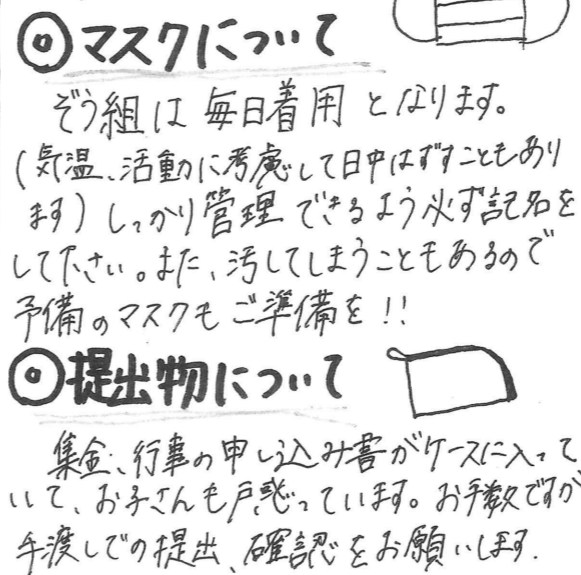 ◎マスクについて
ぞう組は毎日着用となります。
(気温、活動に考慮して日中はずすこともあり
ます) しっかり管理できるよう必ず記名を
して下さい。また、汚してしまうこともあるので
予備のマスクもご準備を!!
◎提出物について
集金、行事の申し込み書がケースに入って
いて、お子さんも戸惑っています。お手数ですが
手渡しでの提出、確認をお願いします.